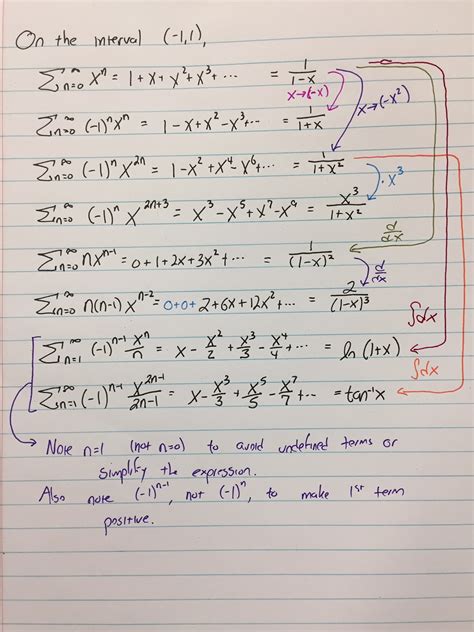 On the interval (-1,1),
∑_{n=0}^{∞} x^n = 1+x+x^2+x^3+⋯ = 1/(1-x)
x→(-x)
x→(-x^2)
∑_{n=0}^{∞} (-1)^n x^n = 1-x+x^2-x^3+⋯ = 1/(1+x)
∑_{n=0}^{∞} (-1)^n x^{2n} = 1-x^2+x^4-x^6+⋯ = 1/(1+x^2)
·x^3
∑_{n=0}^{∞} (-1)^n x^{2n+3} = x^3-x^5+x^7-x^9 = x^3/(1+x^2)
d/dx
∑_{n=0}^{∞} nx^{n-1} = 0+1+2x+3x^2+⋯ = 1/(1-x)^2
d/dx
∑_{n=0}^{∞} n(n-1)x^{n-2} = 0+0+2+6x+12x^2+⋯ = 2/(1-x)^3
∫dx
∑_{n=1}^{∞} (-1)^{n-1} x^n/n = x - x^2/2 + x^3/3 - x^4/4 +⋯ = ln(1+x)
∫dx
∑_{n=1}^{∞} (-1)^{n-1} x^{2n-1}/(2n-1) = x - x^3/3 + x^5/5 - x^7/7 +⋯ = tan^{-1}x
Note n=1 (not n=0) to avoid undefined terms or
simplify the expression.
Also note (-1)^{n-1}, not (-1)^n, to make 1st term
positive.